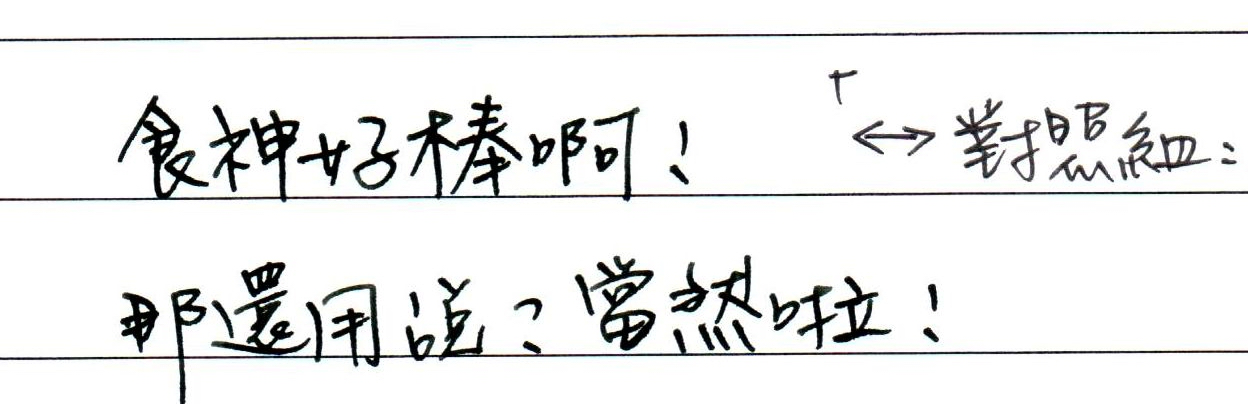 食神好棒啊! ↔ 對照組:
那還用說?當然啦!